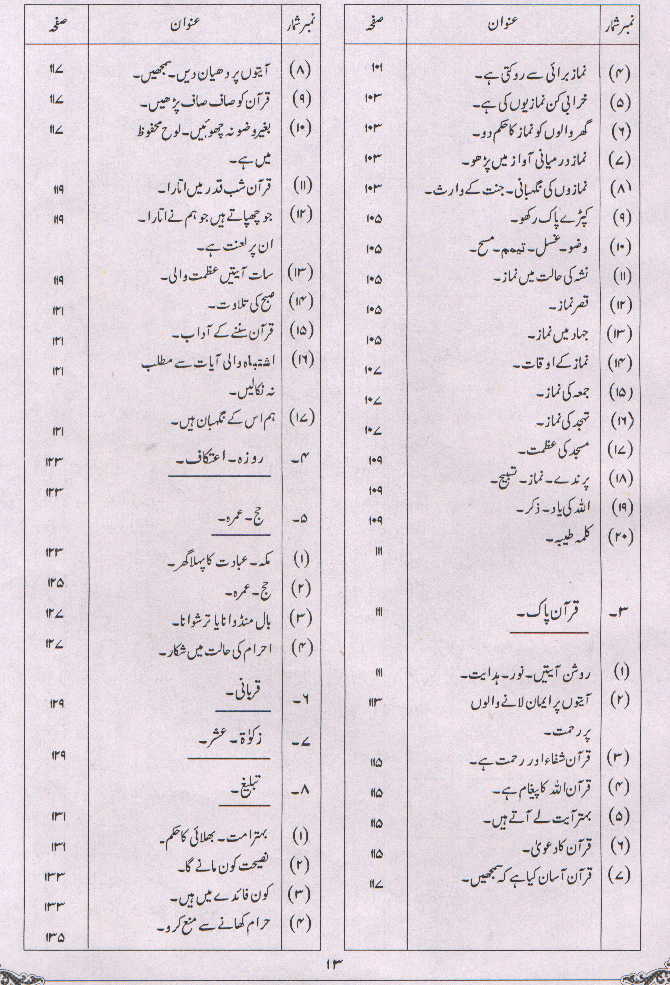 نمبر شمار عنوان صفحہ
(۴) نماز برائی سے روکتی ہے۔ ۱۰۱
(۵) خرابی کن نمازیوں کی ہے۔ ۱۰۳
(۶) گھر والوں کو نماز کا حکم دو۔ ۱۰۳
(۷) نماز درمیانی آواز میں پڑھو۔ ۱۰۳
(۸) نمازوں کی نگہبانی۔ جنت کے وارث۔ ۱۰۳
(۹) کپڑے پاک رکھو۔ ۱۰۵
(۱۰) وضو۔ غسل۔ تیمم۔ مسح۔ ۱۰۵
(۱۱) نشہ کی حالت میں نماز۔ ۱۰۵
(۱۲) قصر نماز۔ ۱۰۵
(۱۳) جہاد میں نماز۔ ۱۰۵
(۱۴) نماز کے اوقات۔ ۱۰۷
(۱۵) جمعہ کی نماز۔ ۱۰۷
(۱۶) تہجد کی نماز۔ ۱۰۷
(۱۷) مسجد کی عظمت۔ ۱۰۹
(۱۸) پرندے۔ نماز۔ تسبیح۔ ۱۰۹
(۱۹) اللہ کی یاد۔ ذکر۔ ۱۰۹
(۲۰) کلمہ طیبہ۔ ۱۱۱
۳۔ قرآن پاک۔ ۱۱۱
(۱) روشن آیتیں۔ نور۔ ہدایت۔ ۱۱۱
(۲) آیتوں پر ایمان لانے والوں ۱۱۳
پر رحمت۔
(۳) قرآن شفاء اور رحمت ہے۔ ۱۱۵
(۴) قرآن اللہ کا پیغام ہے۔ ۱۱۵
(۵) بہتر آیت لے آتے ہیں۔ ۱۱۵
(۶) قرآن کا دعویٰ۔ ۱۱۵
(۷) قرآن آسان کیا ہے کہ سمجھیں۔ ۱۱۷
نمبر شمار عنوان صفحہ
(۸) آیتوں پر دھیان دیں۔ سمجھیں۔ ۱۱۷
(۹) قرآن کو صاف صاف پڑھیں۔ ۱۱۷
(۱۰) بغیر وضو نہ چھوئیں۔ لوح محفوظ ۱۱۷
میں ہے۔
(۱۱) قرآن شب قدر میں اتارا۔ ۱۱۹
(۱۲) جو چھپاتے ہیں جو ہم نے اتارا۔ ۱۱۹
ان پر لعنت ہے۔
(۱۳) سات آیتیں عظمت والی۔ ۱۱۹
(۱۴) صبح کی تلاوت۔ ۱۲۱
(۱۵) قرآن سننے کے آداب۔ ۱۲۱
(۱۶) اشتباہ والی آیات سے مطلب ۱۲۱
نہ نکالیں۔
(۱۷) ہم اس کے نگہبان ہیں۔ ۱۲۱
۴۔ روزہ۔ اعتکاف۔ ۱۲۳
۵۔ حج۔ عمرہ۔ ۱۲۳
(۱) مکہ۔ عبادت کا پہلا گھر۔ ۱۲۳
(۲) حج۔ عمرہ۔ ۱۲۵
(۳) بال منڈوانا یا ترشوانا۔ ۱۲۷
(۴) احرام کی حالت میں شکار۔ ۱۲۷
۶۔ قربانی۔ ۱۲۹
۷۔ زکوٰۃ۔ عشر۔ ۱۲۹
۸۔ تبلیغ۔ ۱۳۱
(۱) بہتر امت۔ بھلائی کا حکم۔ ۱۳۱
(۲) نصیحت کون مانے گا۔ ۱۳۳
(۳) کون فائدے میں ہیں۔ ۱۳۳
(۴) حرام کھانے سے منع کرو۔ ۱۳۵
۱۳